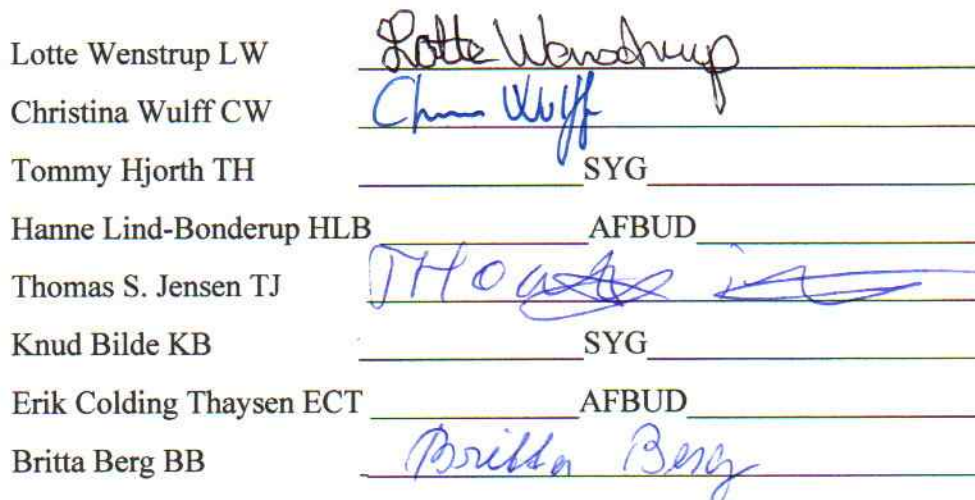 Lotte Wenstrup LW Lotte Wenstrup
Christina Wulff CW Wulff
Tommy Hjorth TH SYG
Hanne Lind-Bonderup HLB AFBUD
Thomas S. Jensen TJ THO
Knud Bilde KB SYG
Erik Colding Thaysen ECT AFBUD
Britta Berg BB Britta Berg